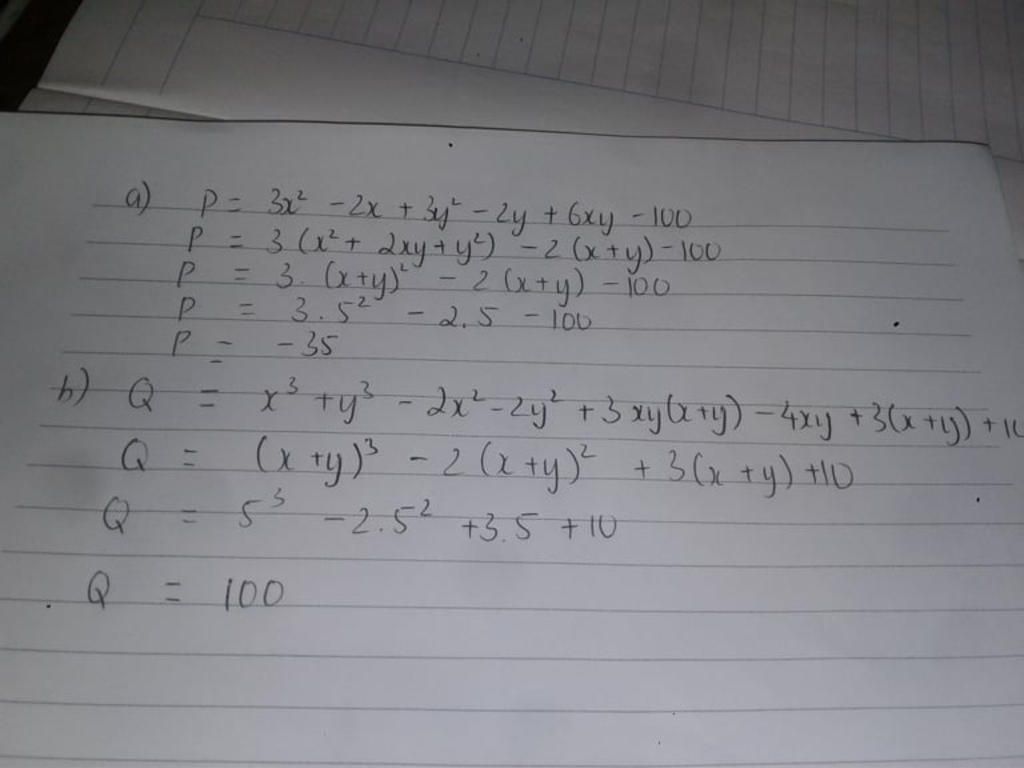 a) P = 3x² - 2x + 3y² - 2y + 6xy - 100
P = 3 (x² + 2xy + y²) - 2 (x+y) - 100
P = 3. (x+y)² - 2 (x+y) - 100
P = 3.5² - 2.5 - 100
P = -35
b) Q = x³ + y³ - 2x² - 2y² + 3xy(x+y) - 4xy + 3(x+y) + 10
Q = (x+y)³ - 2(x+y)² + 3(x+y) + 10
Q = 5³ - 2.5² + 3.5 + 10
Q = 100